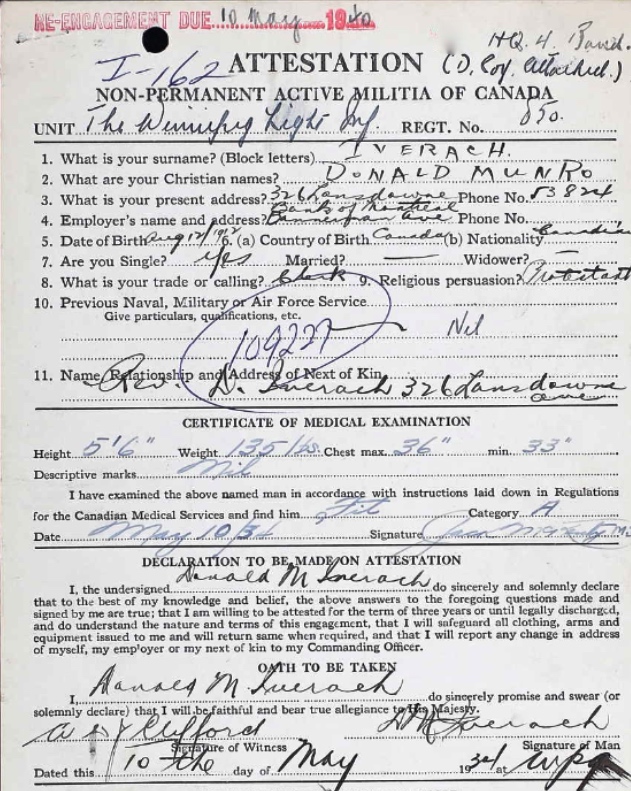 RE-ENGAGEMENT DUE 10 May 1940
HQ. 4 Band.
I-162 ATTESTATION (D. Coy. attached.)
NON-PERMANENT ACTIVE MILITIA OF CANADA
UNIT The Winnipeg Light Inf REGT. No. 850.
1. What is your surname? (Block letters) IVERACH.
2. What are your Christian names? DONALD MUNRO
3. What is your present address? 326 Lansdowne Phone No. 53824
4. Employer's name and address? Bank of Montreal Ave Phone No.
5. Date of Birth Aug 12/1912 6. (a) Country of Birth Canada (b) Nationality Canadian
7. Are you Single? yes Married? — Widower? —
8. What is your trade or calling? Clerk 9. Religious persuasion? Protestant
10. Previous Naval, Military or Air Force Service
Give particulars, qualifications, etc.
Nil
109227
11. Name, Relationship and Address of Next of Kin
Rev. D. Iverach 326 Lansdowne
ave
CERTIFICATE OF MEDICAL EXAMINATION
Height 5'6" Weight 135 lbs. Chest max. 36" min. 33"
Descriptive marks Nil
I have examined the above named man in accordance with instructions laid down in Regulations
for the Canadian Medical Services and find him Fit Category A
Date May 10/34 Signature
DECLARATION TO BE MADE ON ATTESTATION
I, the undersigned Donald M Iverach do sincerely and solemnly declare
that to the best of my knowledge and belief, the above answers to the foregoing questions made and
signed by me are true; that I am willing to be attested for the term of three years or until legally discharged,
and do understand the nature and terms of this engagement, that I will safeguard all clothing, arms and
equipment issued to me and will return same when required, and that I will report any change in address
of myself, my employer or my next of kin to my Commanding Officer.
OATH TO BE TAKEN
I, Donald M. Iverach do sincerely promise and swear (or
solemnly declare) that I will be faithful and bear true allegiance to His Majesty.
Clifford D M Iverach
Signature of Witness Signature of Man
Dated this 10 the day of May 1934 at Wpg